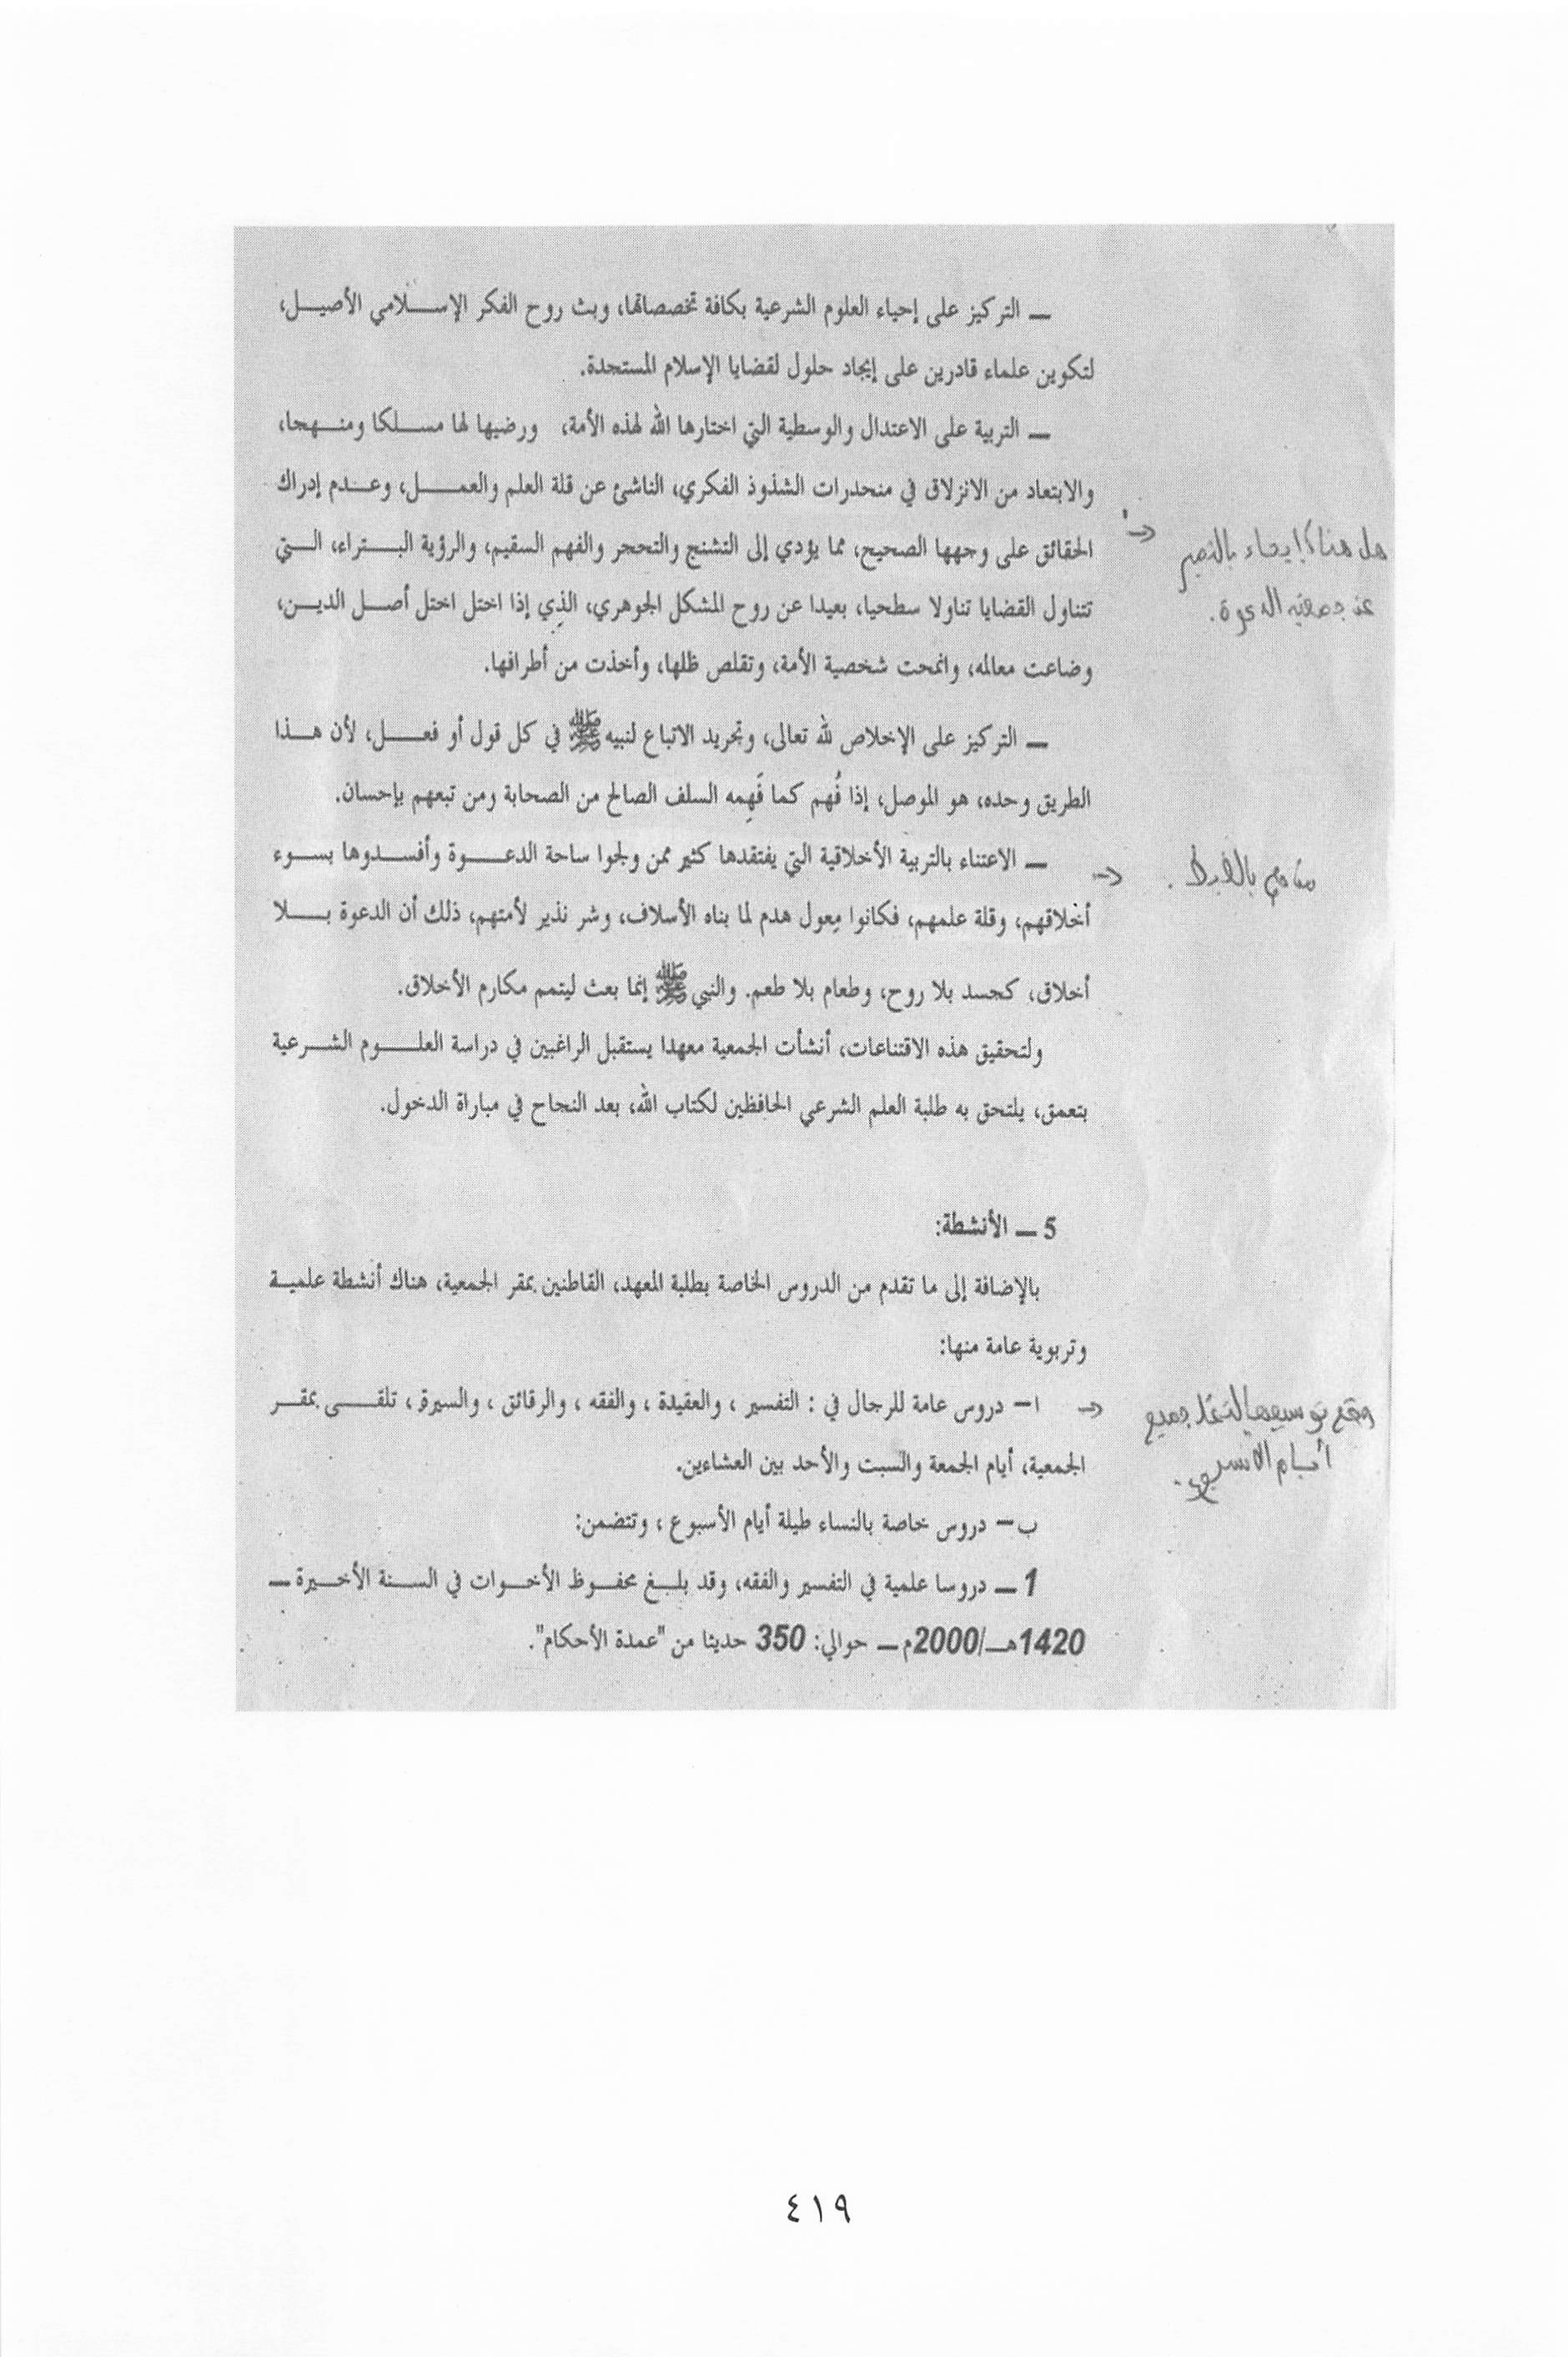 ـ التركيز على إحياء العلوم الشرعية بكافة تخصصاتها، وبث روح الفكر الإسلامي الأصيل،
لتكوين علماء قادرين على إيجاد حلول لقضايا الإسلام المستجدة.
ـ التربية على الاعتدال والوسطية التي اختارها الله لهذه الأمة، ورضيها لها مسلكا ومنهجا،
والابتعاد من الانزلاق في منحدرات الشذوذ الفكري، الناشئ عن قلة العلم والعمل، وعدم إدراك
الحقائق على وجهها الصحيح، مما يؤدي إلى التشنج والتحجر والفهم السقيم، والرؤية البتراء، التي
هل هناك إيحاء بالتميز
تتناول القضايا تناولا سطحيا، بعيدا عن روح المشكل الجوهري، الذي إذا اختل اختل أصل الدين،
عن جمعية الدعوة.
وضاعت معالمه، وانمحت شخصية الأمة، وتقلص ظلها، وأخذت من أطرافها.
ـ التركيز على الإخلاص لله تعالى، وتجريد الاتباع لنبيه ﷺ في كل قول أو فعل، لأن هذا
الطريق وحده، هو الموصل، إذا فُهم كما فَهِمه السلف الصالح من الصحابة ومن تبعهم بإحسان.
ـ الاعتناء بالتربية الأخلاقية التي يفتقدها كثير ممن ولجوا ساحة الدعوة وأفسدوها بسوء
بالضبط.
أخلاقهم، وقلة علمهم، فكانوا مِعول هدم لما بناه الأسلاف، وشر نذير لأمتهم، ذلك أن الدعوة بلا
أخلاق، كجسد بلا روح، وطعام بلا طعم. والنبي ﷺ إنما بعث ليتمم مكارم الأخلاق.
ولتحقيق هذه الاقتناعات، أنشأت الجمعية معهدا يستقبل الراغبين في دراسة العلوم الشرعية
بتعمق، يلتحق به طلبة العلم الشرعي الحافظين لكتاب الله، بعد النجاح في مباراة الدخول.
5 ـ الأنشطة:
بالإضافة إلى ما تقدم من الدروس الخاصة بطلبة المعهد، القاطنين بمقر الجمعية، هناك أنشطة علمية
وتربوية عامة منها:
ا- دروس عامة للرجال في : التفسير ، والعقيدة ، والفقه ، والرقائق ، والسيرة ، تلقى بمقر
وقع توسيعها لتشمل جميع
الجمعية، أيام الجمعة والسبت والأحد بين العشاءين.
أيام الأسبوع.
ب- دروس خاصة بالنساء طيلة أيام الأسبوع ، وتتضمن:
1 ـ دروسا علمية في التفسير والفقه، وقد بلغ محفوظ الأخوات في السنة الأخيرة ـ
1420هـ/2000م ـ حوالي: 350 حديثا من "عمدة الأحكام".
٤١٩